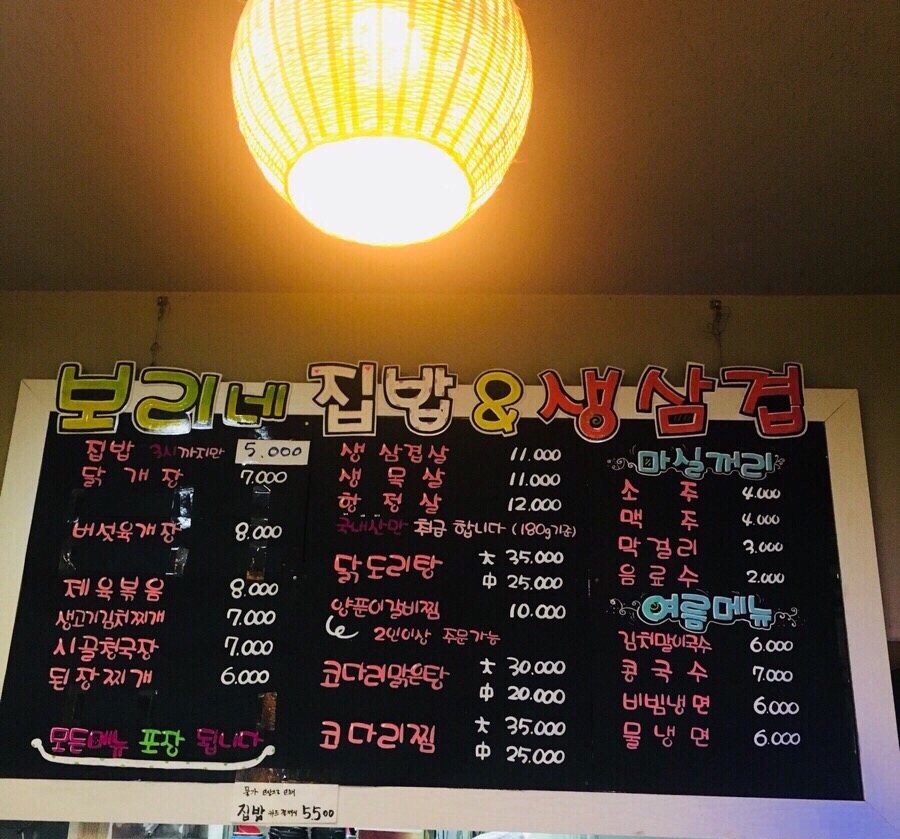 보리네 집밥 & 생삼겹
집밥 3시까지만 5.000
닭개장 7.000
버섯육개장 8.000
제육볶음 8.000
생고기김치찌개 7.000
시골청국장 7.000
된장찌개 6.000
모든메뉴 포장 됩니다
생삼겹살 11.000
생목살 11.000
항정살 12.000
국내산만 취급 합니다 (180g기준)
닭도리탕 大 35.000
中 25.000
양푼이갈비찜 10.000
2인이상 주문가능
코다리맑은탕 大 30.000
中 20.000
코다리찜 大 35.000
中 25.000
마실꺼리
소주 4.000
맥주 4.000
막걸리 3.000
음료수 2.000
여름메뉴
김치말이국수 6.000
콩국수 7.000
비빔냉면 6.000
물냉면 6.000
물가
집밥 5.500